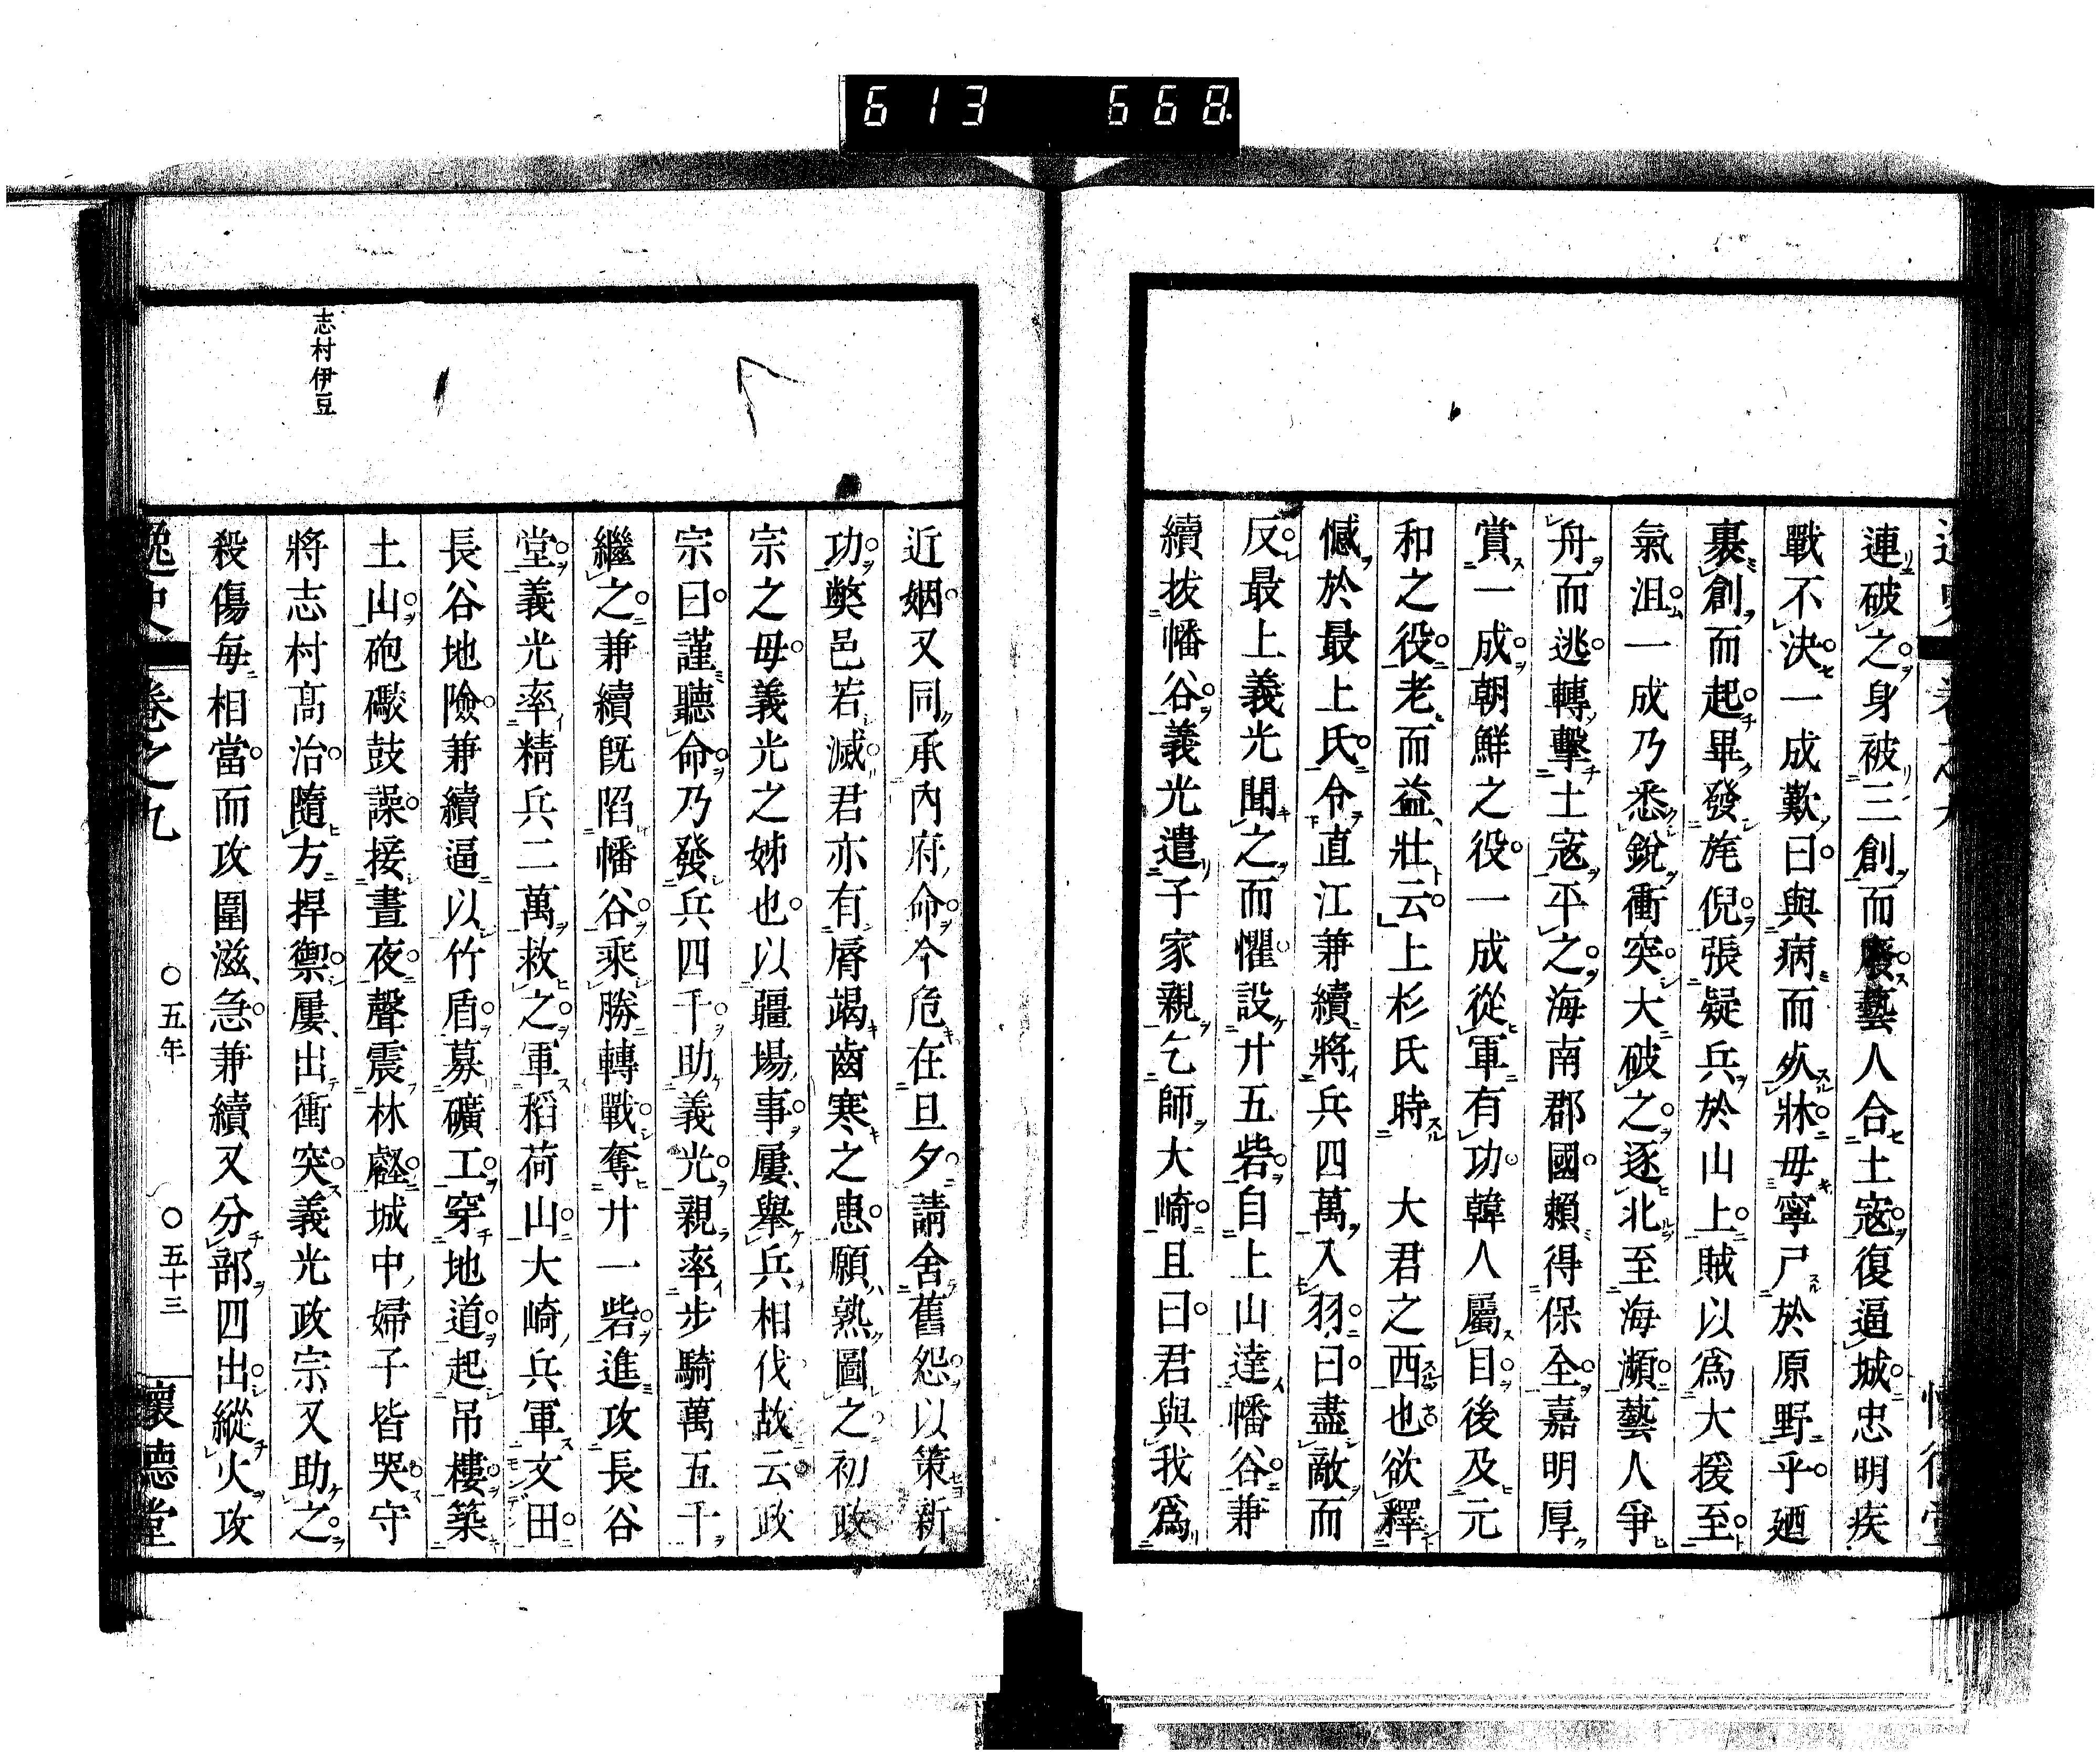 613 668
連破之身被三創而廢藝人合土寇復逼城忠明疾
戰不決一成歎曰與病而死牀毋寧尸於原野乎廼
裹創而起畢發旄倪張疑兵於山上賊以爲大援至
氣沮一成乃悉銳衝突大破之逐北至海瀕藝人爭
舟而逃轉擊土寇平之海南郡國賴得保全嘉明厚
賞一成朝鮮之役一成從軍有功韓人屬目後及元
和之役老而益壯云上杉氏時 大君之西也欲釋
憾於最上氏令直江兼續將兵四萬入羽曰盡敵而
反最上義光聞之而懼設廿五砦自上山達幡谷兼
續拔幡谷義光遣子家親乞師大崎且曰君與我爲
近姻又同承內府命今危在旦夕請舍舊怨以策新
功獘邑若滅君亦有脣竭齒寒之患願熟圖之初政
宗之母義光之姊也以疆場事屢舉兵相伐故云政
宗曰謹聽命乃發兵四千助義光親率步騎萬五千
繼之兼續既陷幡谷乘勝轉戰奪廿一砦進攻長谷
堂義光率精兵二萬救之軍稻荷山大崎兵軍文田
長谷地險兼續逼以竹盾募礦工穿地道起吊樓築
土山砲礮鼓譟接晝夜聲震林壑城中婦子皆哭守
志村伊豆
將志村高治隨方捍禦屢出衝突義光政宗又助之
殺傷每相當而攻圍滋急兼續又分部四出縱火攻
逸史 卷之九 ○五年 ○五十三 懷德堂